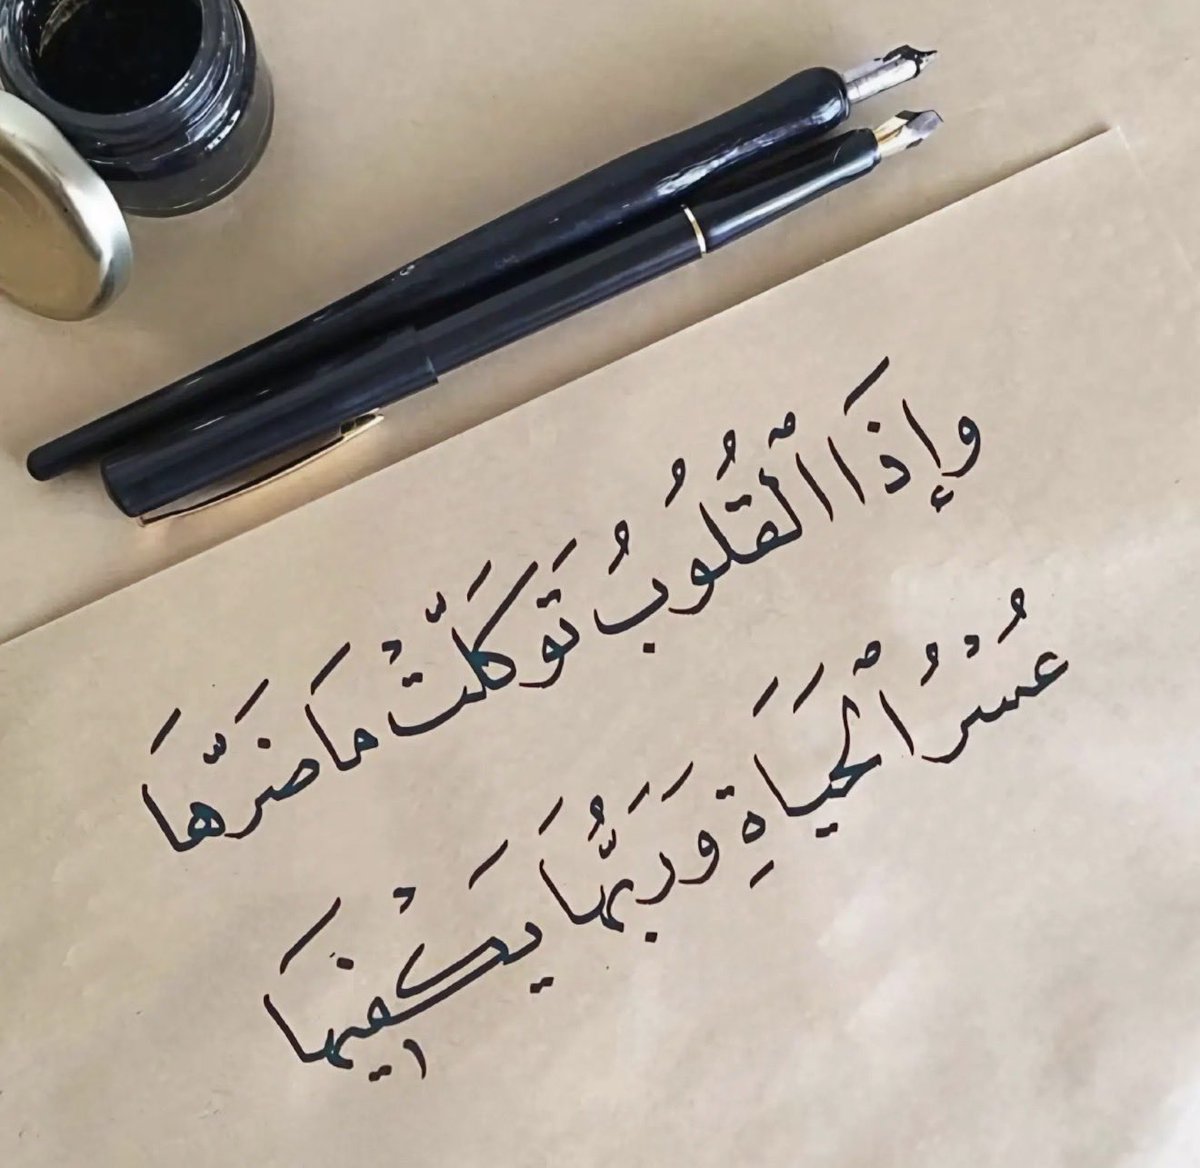 وإِذَا ٱلْقُلُوبُ تَوَكَّلَتْ مَا ضَرَّهَا
عُسْرُ ٱلْحَيَاةِ وَرَبُّهَا يَكْفِيهَا